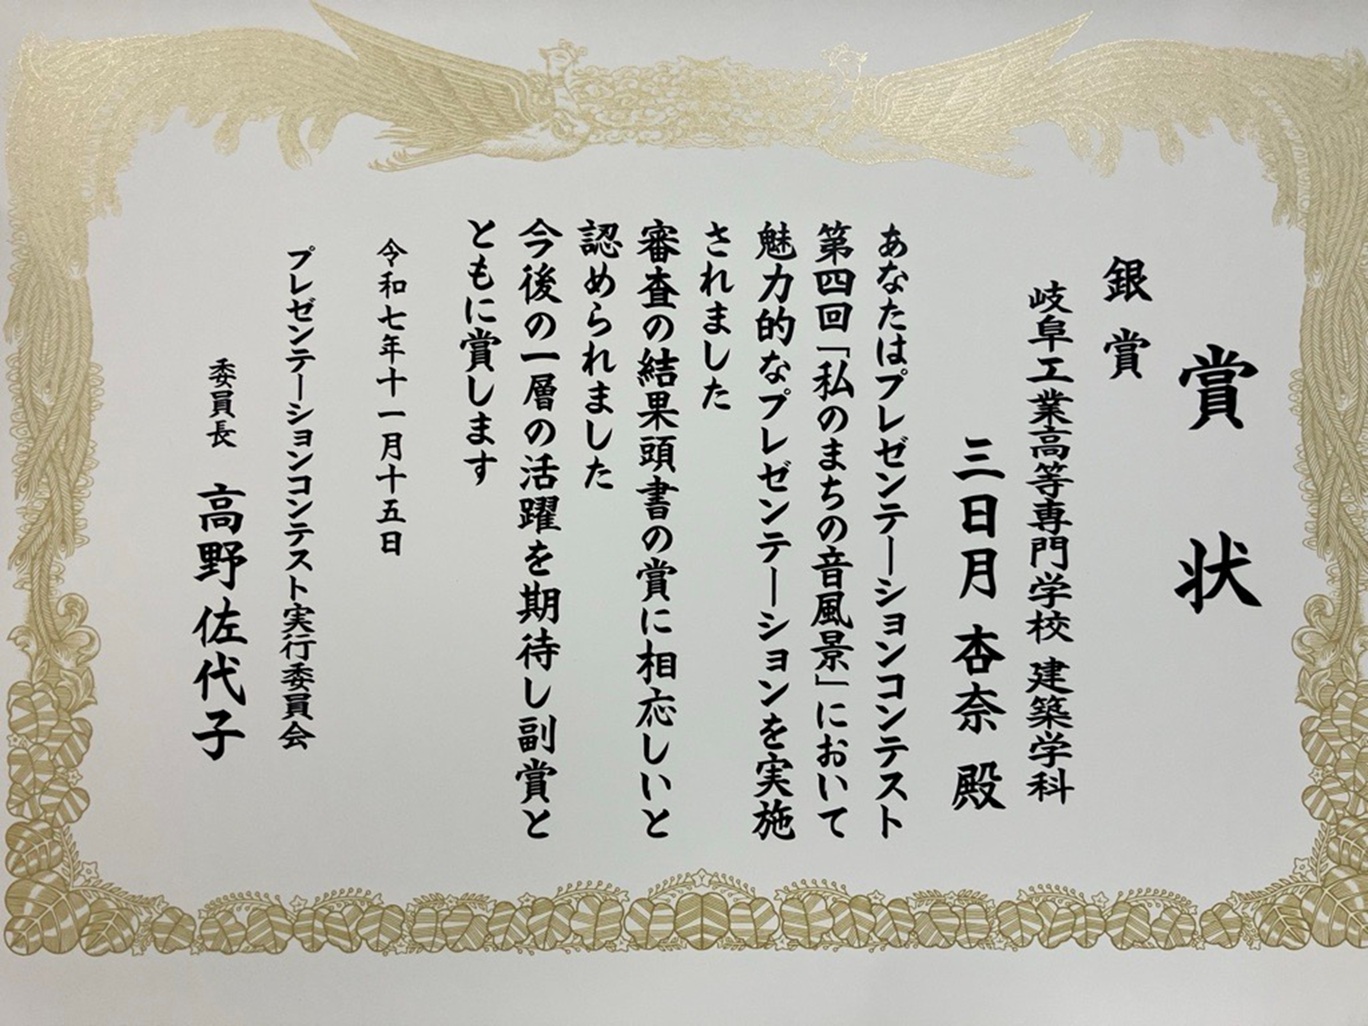 賞状
銀賞
岐阜工業高等専門学校 建築学科
三日月 杏奈 殿
あなたはプレゼンテーションコンテスト
第四回「私のまちの音風景」において
魅力的なプレゼンテーションを実施
されました
審査の結果頭書の賞に相応しいと
認められました
今後の一層の活躍を期待し副賞と
ともに賞します
令和七年十一月十五日
プレゼンテーションコンテスト実行委員会
委員長 高野佐代子